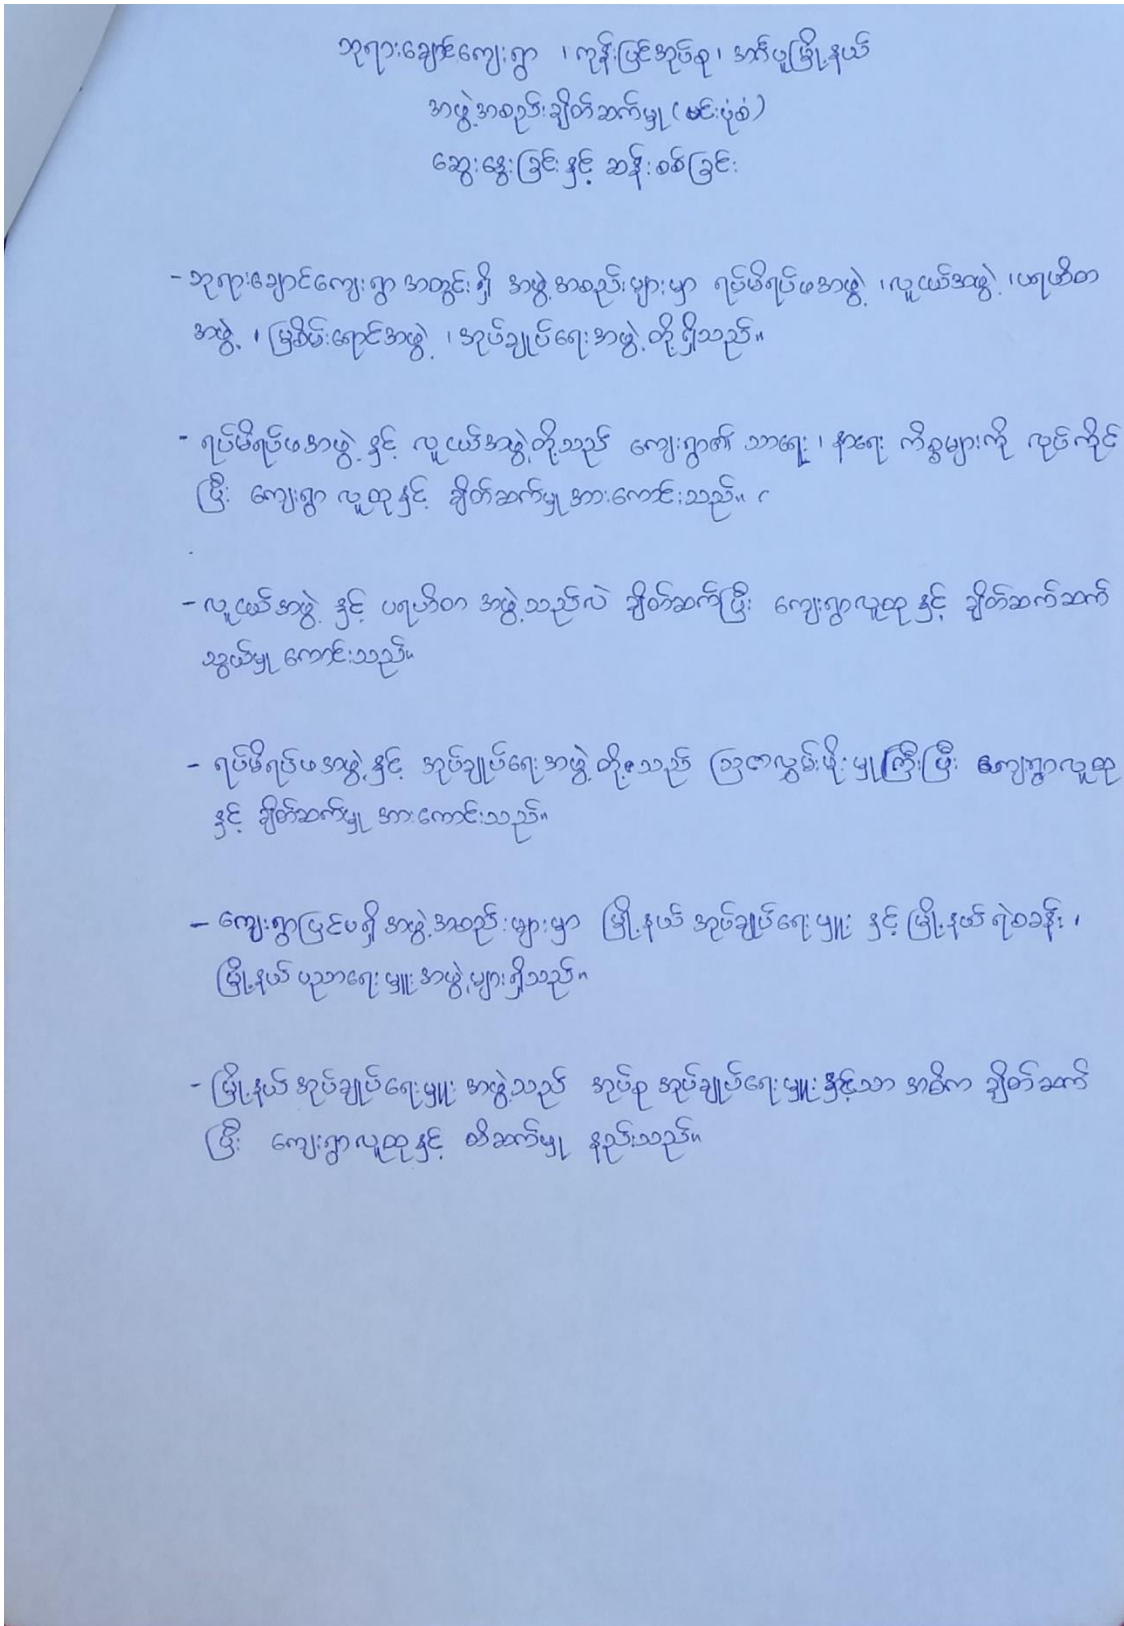 ဘုရားချောင်ကျေးရွာ ၊ ကုန်းပြင်အုပ်စု ၊ အင်္ဂပူမြို့နယ်
အဖွဲ့အစည်းချိတ်ဆက်မှု (မင်းပုံစံ)
ဆွေးနွေးခြင်းနှင့် ဆန်းစစ်ခြင်း
- ဘုရားချောင်ကျေးရွာ အတွင်းရှိ အဖွဲ့အစည်းများမှာ ရပ်မိရပ်ဖအဖွဲ့ ၊ လူငယ်အဖွဲ့ ၊ ပရဟိတ
အဖွဲ့ ၊ မြစိမ်းရောင်အဖွဲ့ ၊ အုပ်ချုပ်ရေးအဖွဲ့ တို့ရှိသည်။
- ရပ်မိရပ်ဖအဖွဲ့ နှင့် လူငယ်အဖွဲ့တို့သည် ကျေးရွာ၏ သာရေး ၊ နာရေး ကိစ္စများကို လုပ်ကိုင်
ပြီး ကျေးရွာ လူထုနှင့် ချိတ်ဆက်မှု အားကောင်းသည်။
- လူငယ်အဖွဲ့ နှင့် ပရဟိတ အဖွဲ့သည်လဲ ချိတ်ဆက်ပြီး ကျေးရွာလူထု နှင့် ချိတ်ဆက်ဆက်
သွယ်မှု ကောင်းသည်။
- ရပ်မိရပ်ဖအဖွဲ့နှင့် အုပ်ချုပ်ရေးအဖွဲ့ တို့သည် ဩဇာလွှမ်းမိုးမှုကြီးပြီး ကျေးရွာလူထု
နှင့် ချိတ်ဆက်မှု အားကောင်းသည်။
- ကျေးရွာပြင်ပရှိ အဖွဲ့အစည်းများမှာ မြို့နယ် အုပ်ချုပ်ရေးမှူး နှင့် မြို့နယ် ရဲစခန်း ၊
မြို့နယ် ပညာရေးမှူးအဖွဲ့များ ရှိသည်။
- မြို့နယ် အုပ်ချုပ်ရေးမှူး အဖွဲ့သည် အုပ်စု အုပ်ချုပ်ရေးမှူးနှင့်သာ အဓိက ချိတ်ဆက်
ပြီး ကျေးရွာလူထုနှင့် ထိဆက်မှု နည်းသည်။